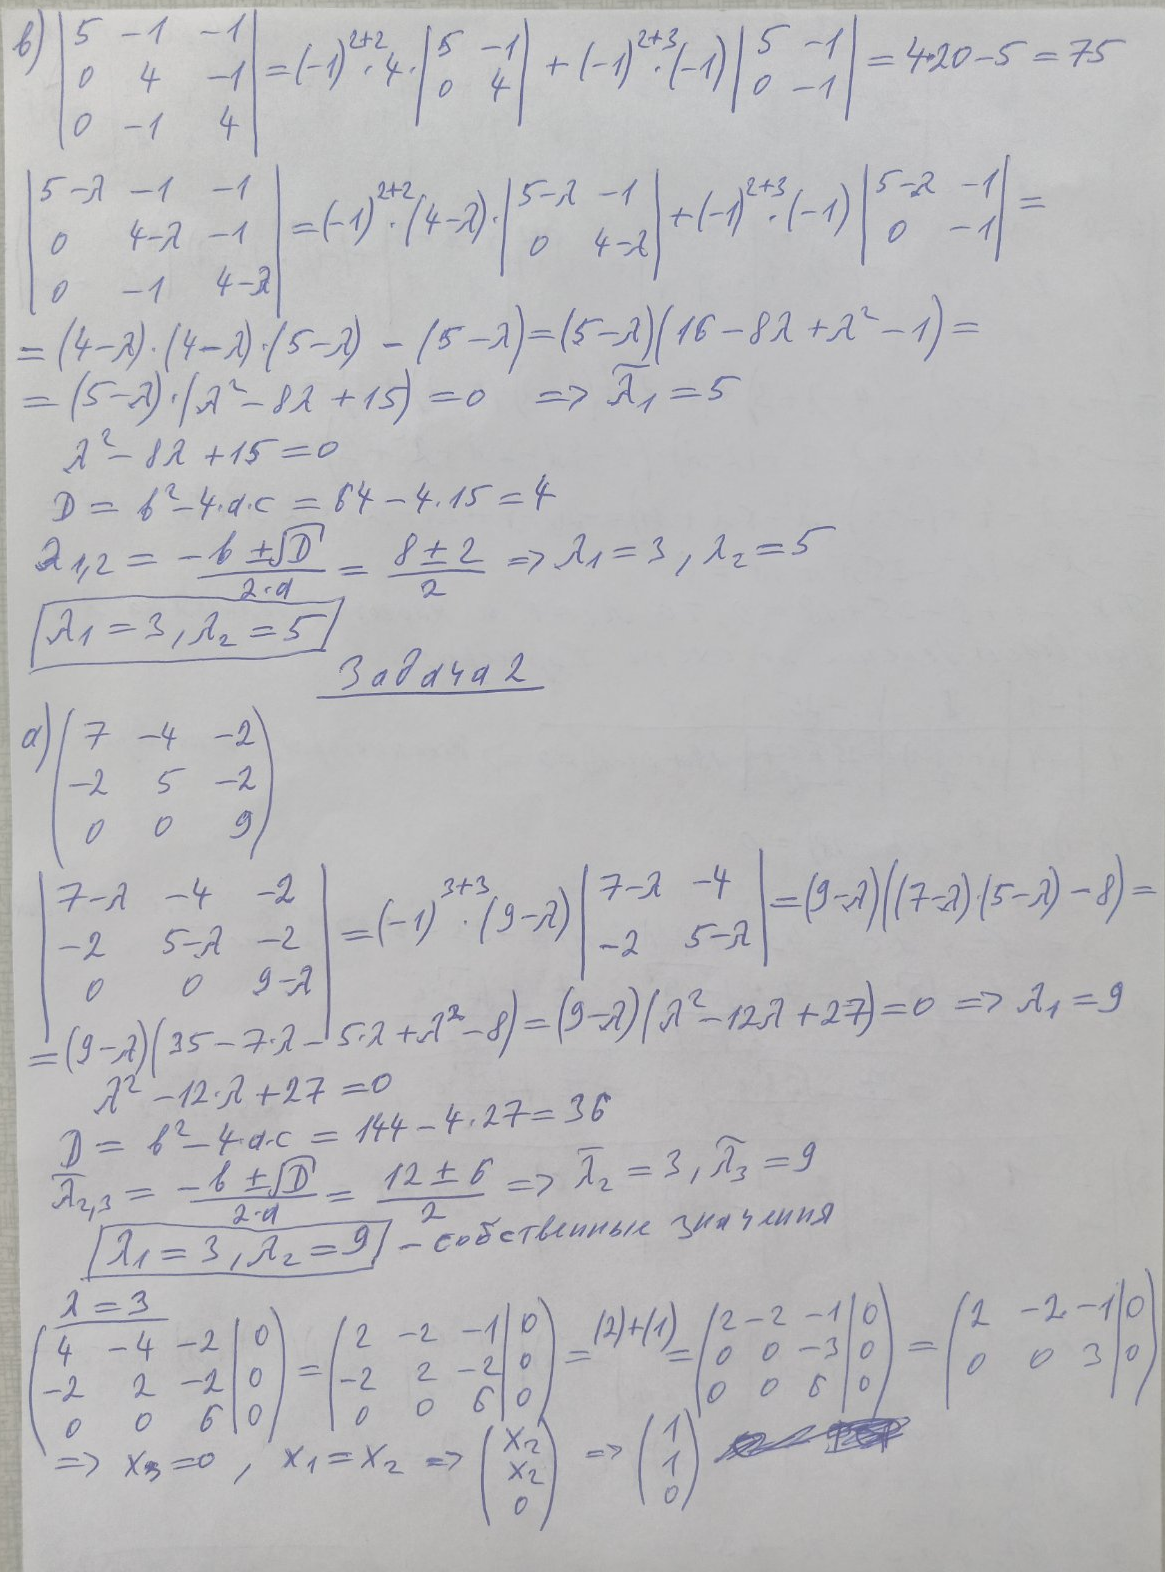 в) |5 -1 -1; 0 4 -1; 0 -1 4| = (-1)^{2+2} · 4 · |5 -1; 0 4| + (-1)^{2+3} · (-1) |5 -1; 0 -1| = 4·20 - 5 = 75
|5-λ -1 -1; 0 4-λ -1; 0 -1 4-λ| = (-1)^{2+2} · (4-λ) · |5-λ -1; 0 4-λ| + (-1)^{2+3} · (-1) |5-λ -1; 0 -1| =
= (4-λ) · (4-λ) · (5-λ) - (5-λ) = (5-λ)(16 - 8λ + λ² - 1) =
= (5-λ) · (λ² - 8λ + 15) = 0 => λ̃₁ = 5
λ² - 8λ + 15 = 0
D = b² - 4·a·c = 64 - 4·15 = 4
λ₁,₂ = (-b ± √D)/(2·a) = (8 ± 2)/2 => λ₁ = 3, λ₂ = 5
λ₁ = 3, λ₂ = 5
Задача 2
а) (7 -4 -2; -2 5 -2; 0 0 9)
|7-λ -4 -2; -2 5-λ -2; 0 0 9-λ| = (-1)^{3+3} · (9-λ) |7-λ -4; -2 5-λ| = (9-λ)((7-λ)·(5-λ) - 8) =
= (9-λ)(35 - 7·λ - 5·λ + λ² - 8) = (9-λ)(λ² - 12λ + 27) = 0 => λ₁ = 9
λ² - 12·λ + 27 = 0
D = b² - 4·a·c = 144 - 4·27 = 36
λ̄₂,₃ = (-b ± √D)/(2·a) = (12 ± 6)/2 => λ̄₂ = 3, λ̃₃ = 9
λ₁ = 3, λ₂ = 9 - собственные значения
λ = 3
(4 -4 -2 | 0; -2 2 -2 | 0; 0 0 6 | 0) = (2 -2 -1 | 0; -2 2 -2 | 0; 0 0 6 | 0) = (2)+(1) = (2 -2 -1 | 0; 0 0 -3 | 0; 0 0 6 | 0) = (2 -2 -1 | 0; 0 0 3 | 0)
=> x₃ = 0, x₁ = x₂ => (x₂; x₂; 0) => (1; 1; 0)